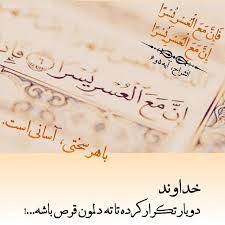 فَإِنَّ مَعَ الْعُسْرِ يُسْرًا
إِنَّ مَعَ الْعُسْرِ يُسْرًا
انشراح، آیه ۵ و ۶
اِنَّ مَعَ الْعُسْرِ یُسْرًا
با هر سختی، آسانی است.
خداوند
دوبار تکرار کرده تا ته دلمون قرص باشه...!